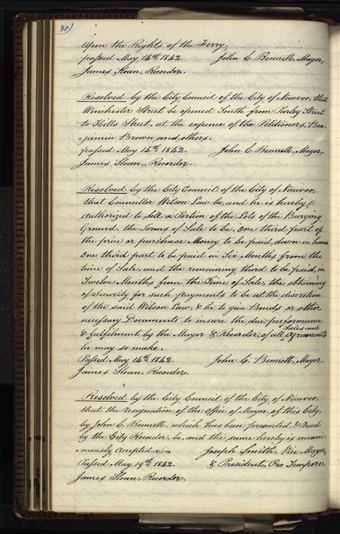 80)
Upon the Rights of the Ferry,
passed May 14th 1842. John C. Bennett, Mayor,
James Sloan, Recorder.
Resolved by the City Council of the City of Nauvoo, that
Winchester Street be opened South from Parley Street
to Hills Street, at the expence of the Petitioners, Ben
jamin Brown and others.
passed May 14th 1842. John C. Bennett, Mayor,
James Sloan, Recorder.
Resolved by the City Council of the City of Nauvoo,
that Councillor Wilson Law be, and he is hereby
Authorized to sell a Portion of the Lots of the Burying
Ground, the Terms of Sale to be, one third part of
the price or purchase Money to be paid down in hand
One third part to be paid in Six Months from the
time of Sale, and the remaining third to be paid, in
Twelve Months from the Time of Sale, the obtaining
of Security for such payments to be at the discretion
of the said Wilson Law, & he to give Bonds or other
necessary Documents to insure the due performance
& fulfilment by the Mayor & Recorder, of all Sales and Agreements
he may so make.
Passed May 14th 1842. John C. Bennett, Mayor,
James Sloan Recorder.
Resolved by the City Council of the City of Nauvoo,
that the resignation of the Office of Mayor, of this City,
by John C. Bennett, which has been presented, & read
by the City Recorder be, and the same hereby is unani
mously accepted. Joseph Smith, Vice Mayor,
Passed May 19th 1842. & President, Pro Tempore.
James Sloan, Recorder.